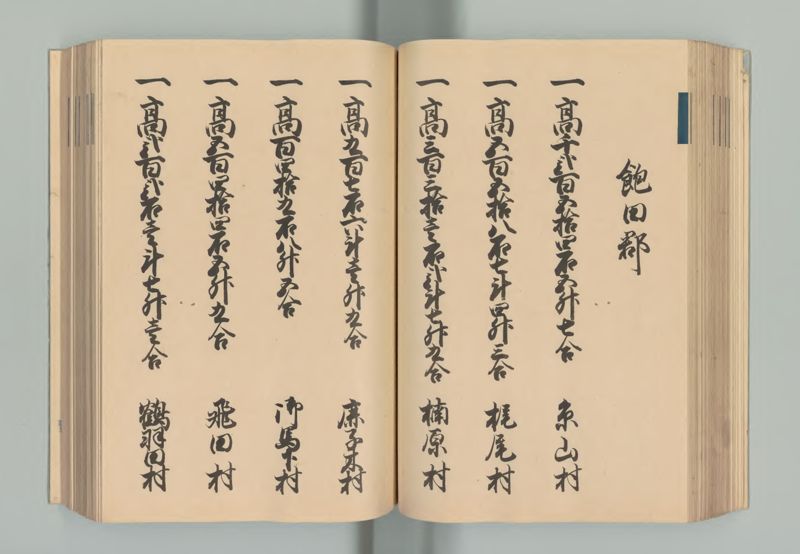 飽田郡
一高千弐百五拾四石五升七合 京山村
一高五百五拾八石七斗四升三合 梶尾村
一高三百三拾壱石弐斗七升九合 楠原村
一高九百七石六斗壱升九合 麻子木村
一高百四拾九石八升五合 御馬下村
一高五百四拾四石五升九合 飛田村
一高弐百弐石壱斗七升壱合 鶴羽田村